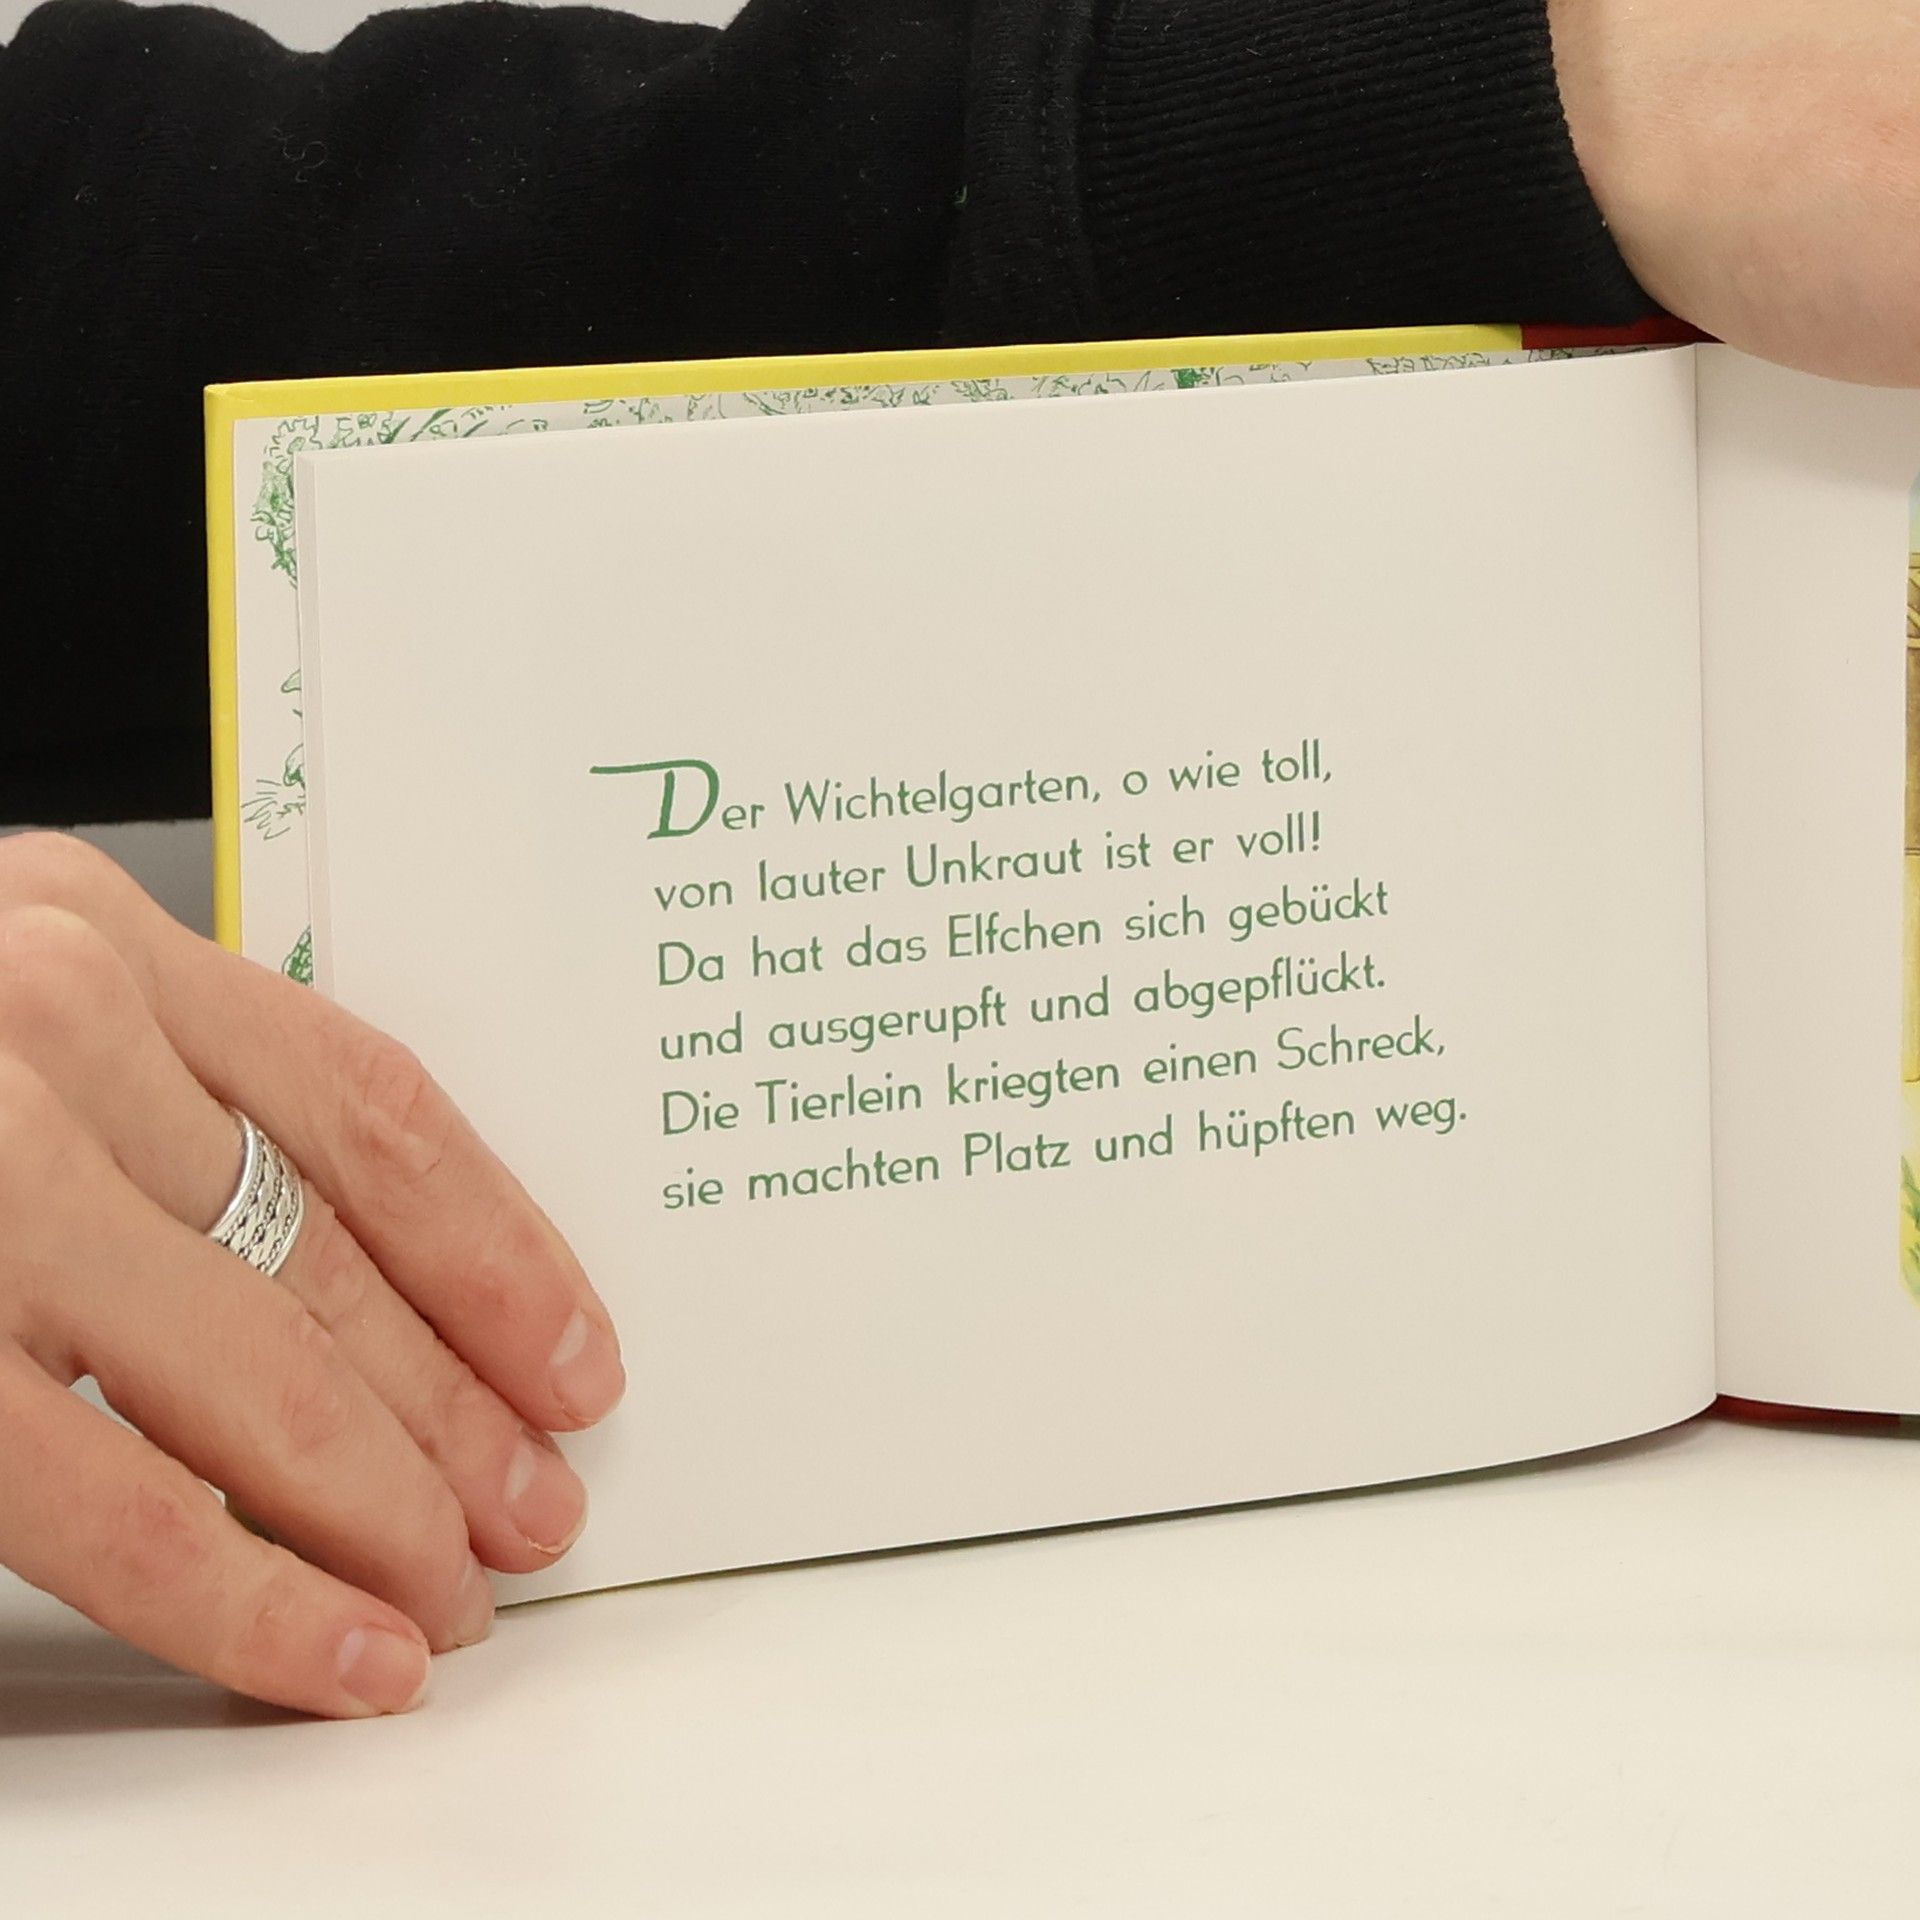 Der Wichtelgarten, o wie toll,
von lauter Unkraut ist er voll!
Da hat das Elfchen sich gebückt
und ausgerupft und abgepflückt.
Die Tierlein kriegten einen Schreck,
sie machten Platz und hüpften weg.